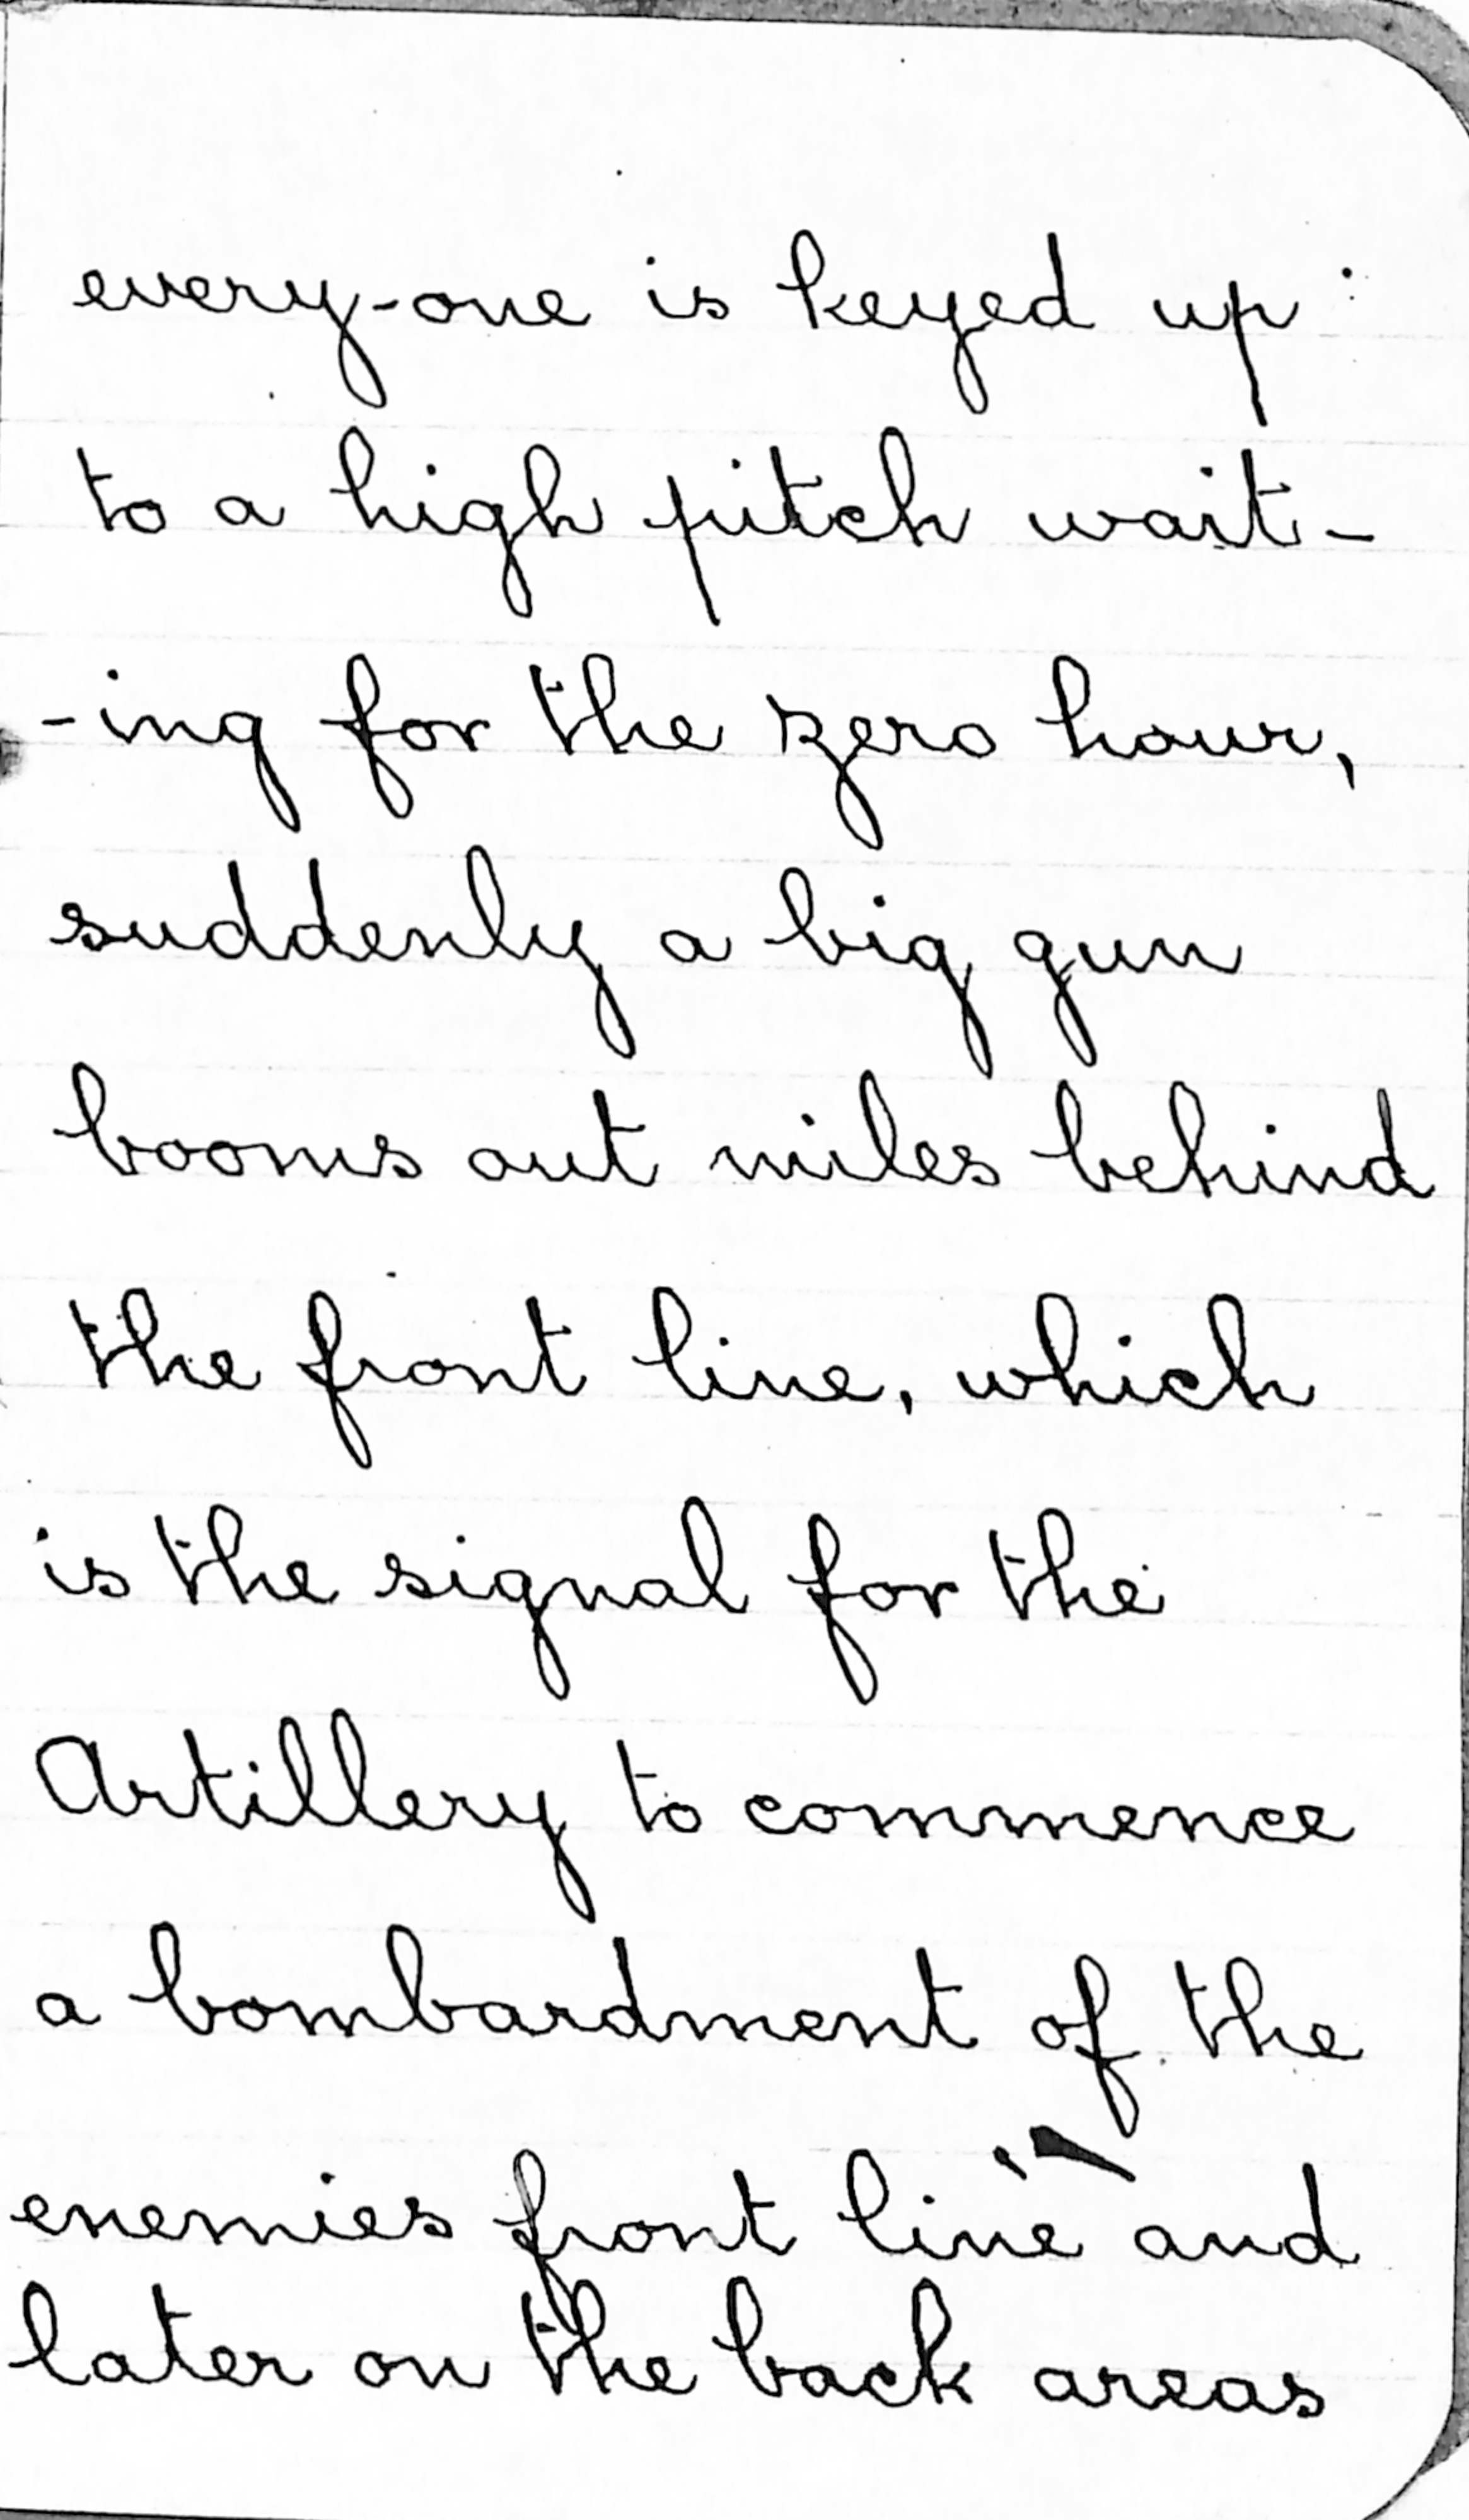 every-one is keyed up
to a high pitch wait-
-ing for the zero hour,
suddenly a big gun
booms out miles behind
the front line, which
is the signal for the
Artillery to commence
a bombardment of the
enemies front line and
later on the back areas